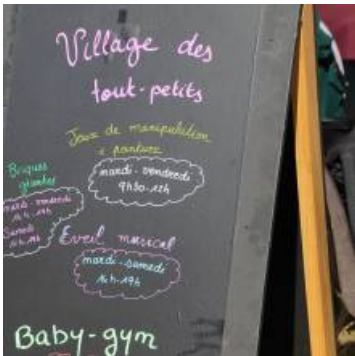 Village des
tout-petits
Jeux de manipulation
+ peinture
mardi - vendredi
9h30-12h
Briques
géantes
mardi - vendredi
16h-19h
Samedi
14h-19h
Eveil musical
mardi - samedi
16h-19h
Baby-gym